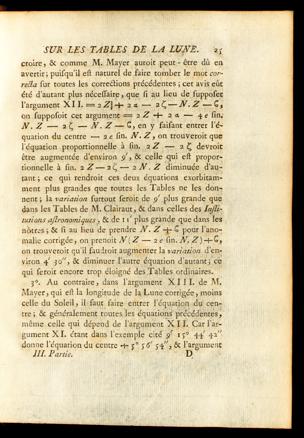 SUR LES TABLES DE LA LUNE. 25
croire, & comme M. Mayer auroit peut-être dû en
avertir; puisqu'il est naturel de faire tomber le mot cor-
recta sur toutes les corrections précédentes; cet avis eût
été d'autant plus nécessaire, que si au lieu de supposer
l'argument XII. = 2Z + 2 a — 2 ζ — N. Z — G,
on supposoit cet argument = 2 Z + 2 a — 4 e sin.
N. Z — 2 ζ — N. Z — G, en y faisant entrer l'é-
quation du centre — 2 e sin. N. Z, on trouveroit que
l'équation proportionnelle à sin. 2 Z — 2 ζ devroit
être augmentée d'environ 9', & celle qui est propor-
tionnelle à sin. 2 Z — 2 ζ — 2 N. Z diminuée d'au-
tant; ce qui rendroit ces deux équations exorbitam-
ment plus grandes que toutes les Tables ne les don-
nent; la variation surtout seroit de 9' plus grande que
dans les Tables de M. Clairaut, & dans celles des Insti-
tutions astronomiques, & de 11' plus grande que dans les
nôtres; & si au lieu de prendre N. Z + G pour l'ano-
malie corrigée, on prenoit N (Z — 2 e sin. N. Z) + G,
on trouveroit qu'il faudroit augmenter la variation d'en-
viron 4' 30", & diminuer l'autre équation d'autant; ce
qui seroit encore trop éloigné des Tables ordinaires.
3°. Au contraire, dans l'argument XIII. de M.
Mayer, qui est la longitude de la Lune corrigée, moins
celle du Soleil, il faut faire entrer l'équation du cen-
tre; & généralement toutes les équations précédentes,
même celle qui dépend de l'argument XII. Car l'ar-
gument XI. étant dans l'exemple cité 9' 15° 44' 42"
donne l'équation du centre + 5° 56' 54", & l'argument
III. Partie. D